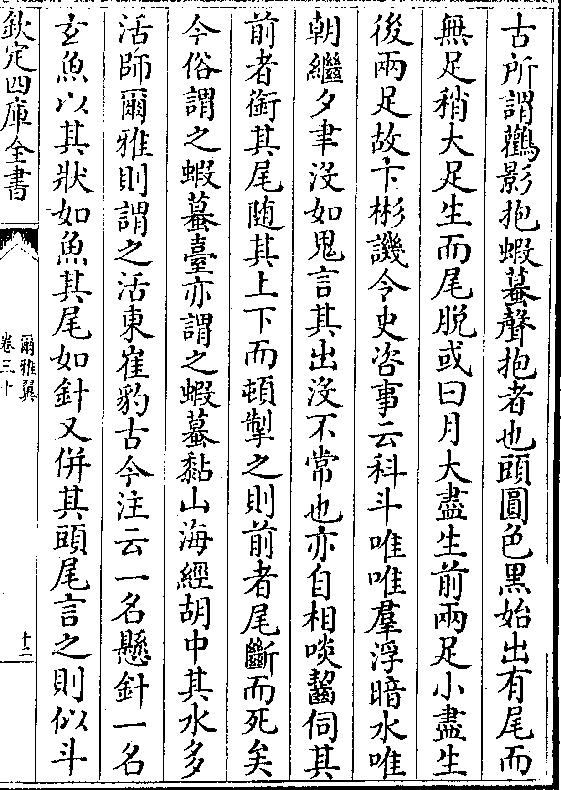 古所謂鸛影抱蝦蟇聲抱者也頭圓色黑始出有尾而
無足稍大足生而尾脫或曰月大盡生前兩足小盡生
後兩足故卞彬譏令史咨事云科斗唯唯羣浮暗水唯
朝繼夕聿没如鬼言其出没不常也亦自相啖齧伺其
前者銜其尾随其上下而頓掣之則前者尾斷而死矣
今俗謂之蝦蟇臺亦謂之蝦蟇黏山海經胡中其水多
活師爾雅則謂之活東崔豹古今注云一名懸針一名
玄魚以其狀如魚其尾如針又併其頭尾言之則似斗
欽定四庫全書
爾雅翼
卷三十
十二